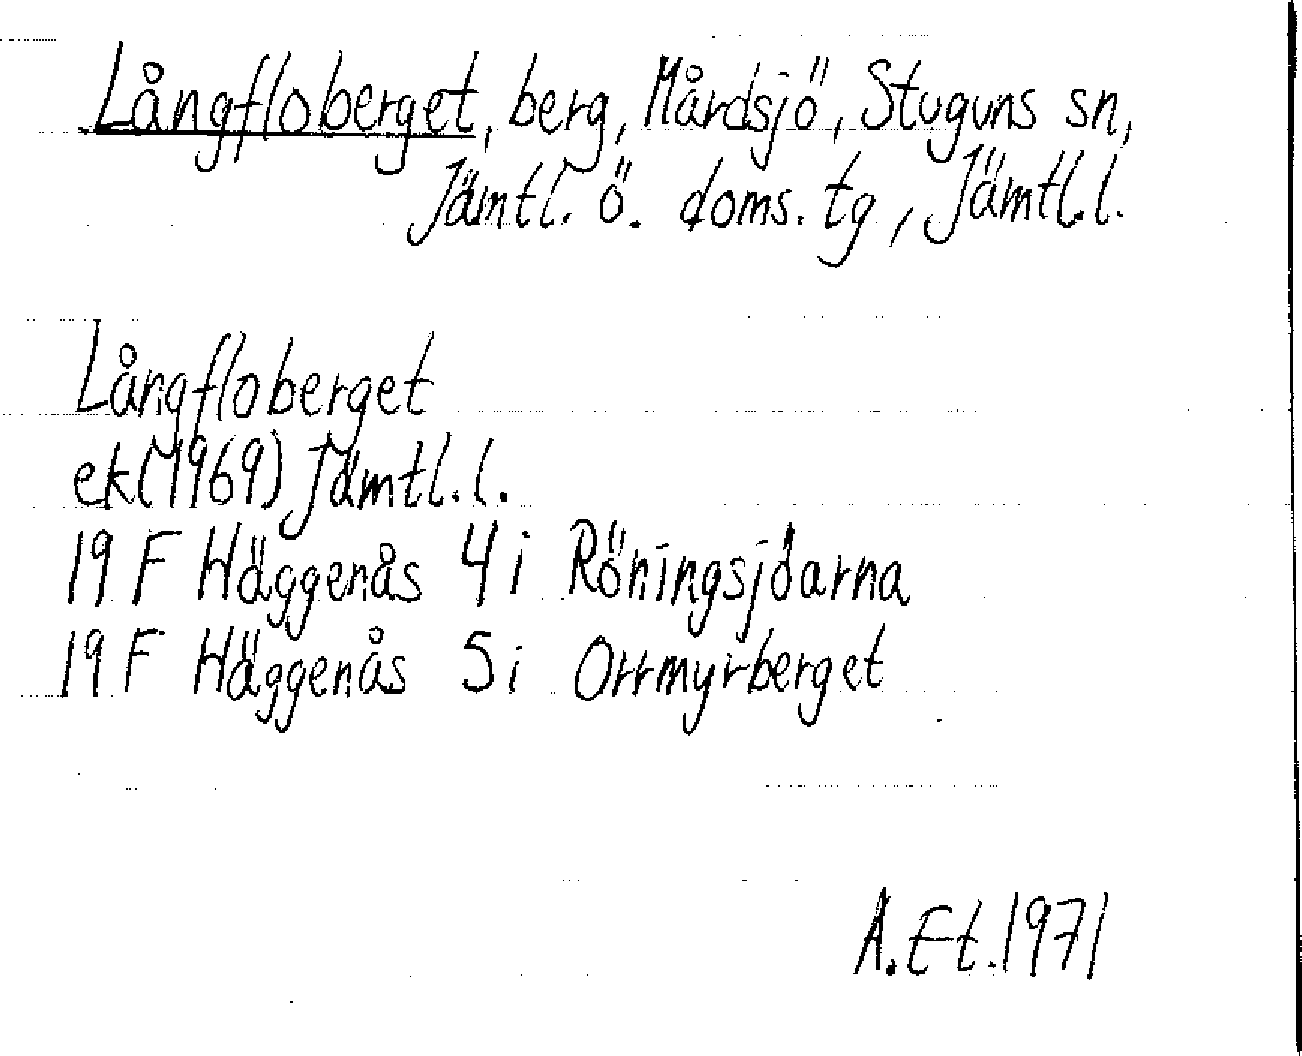 Långfloberget, berg, Mårdsjö, Stuguns sn,
Jämtl. ö. doms. tg, Jämtl.l.
Långfloberget
ek(1969) Jämtl.l.
19 F Häggenås 4 i Röningsjöarna
19 F Häggenås 5 i Orrmyrberget
A.Et.1971